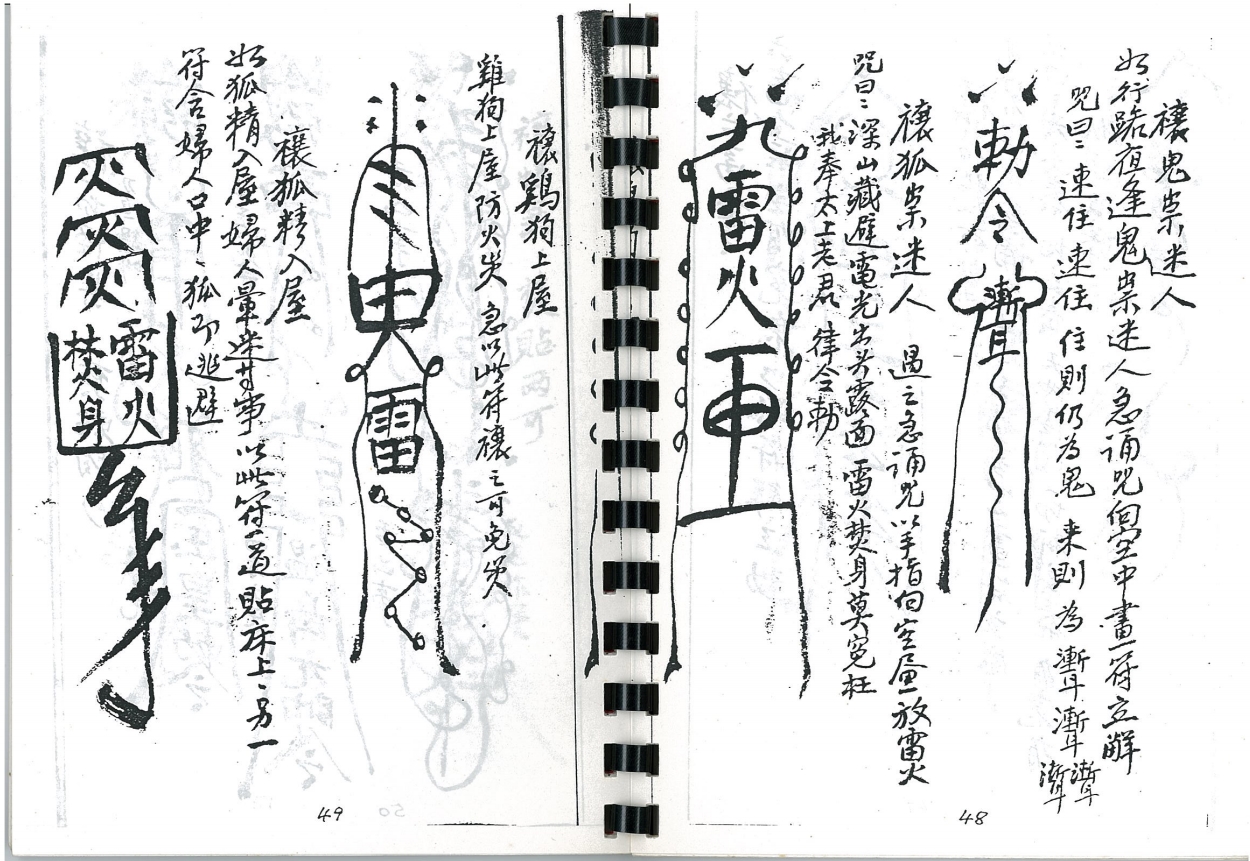 禳鬼祟迷人
如行路夜逢鬼祟迷人急誦咒向空中畫一符立解
咒曰:速住速住 住則仍為鬼 来則為魙魙魙魙
勅令魙
禳狐祟迷人 遇之急誦咒以手指向空屋一放雷火
咒曰:深山藏避電光出头露面雷火焚身莫寃枉
我奉太上老君律令勅
九雷火
禳鷄狗上屋
雞狗上屋防火災 急以此符禳之可免災
雷
禳狐精入屋
如狐精入屋婦人暈迷廿事以此符一道貼床上、另一
符含婦人口中、狐即逃避
灰灰灰
雷火
焚身
48
49